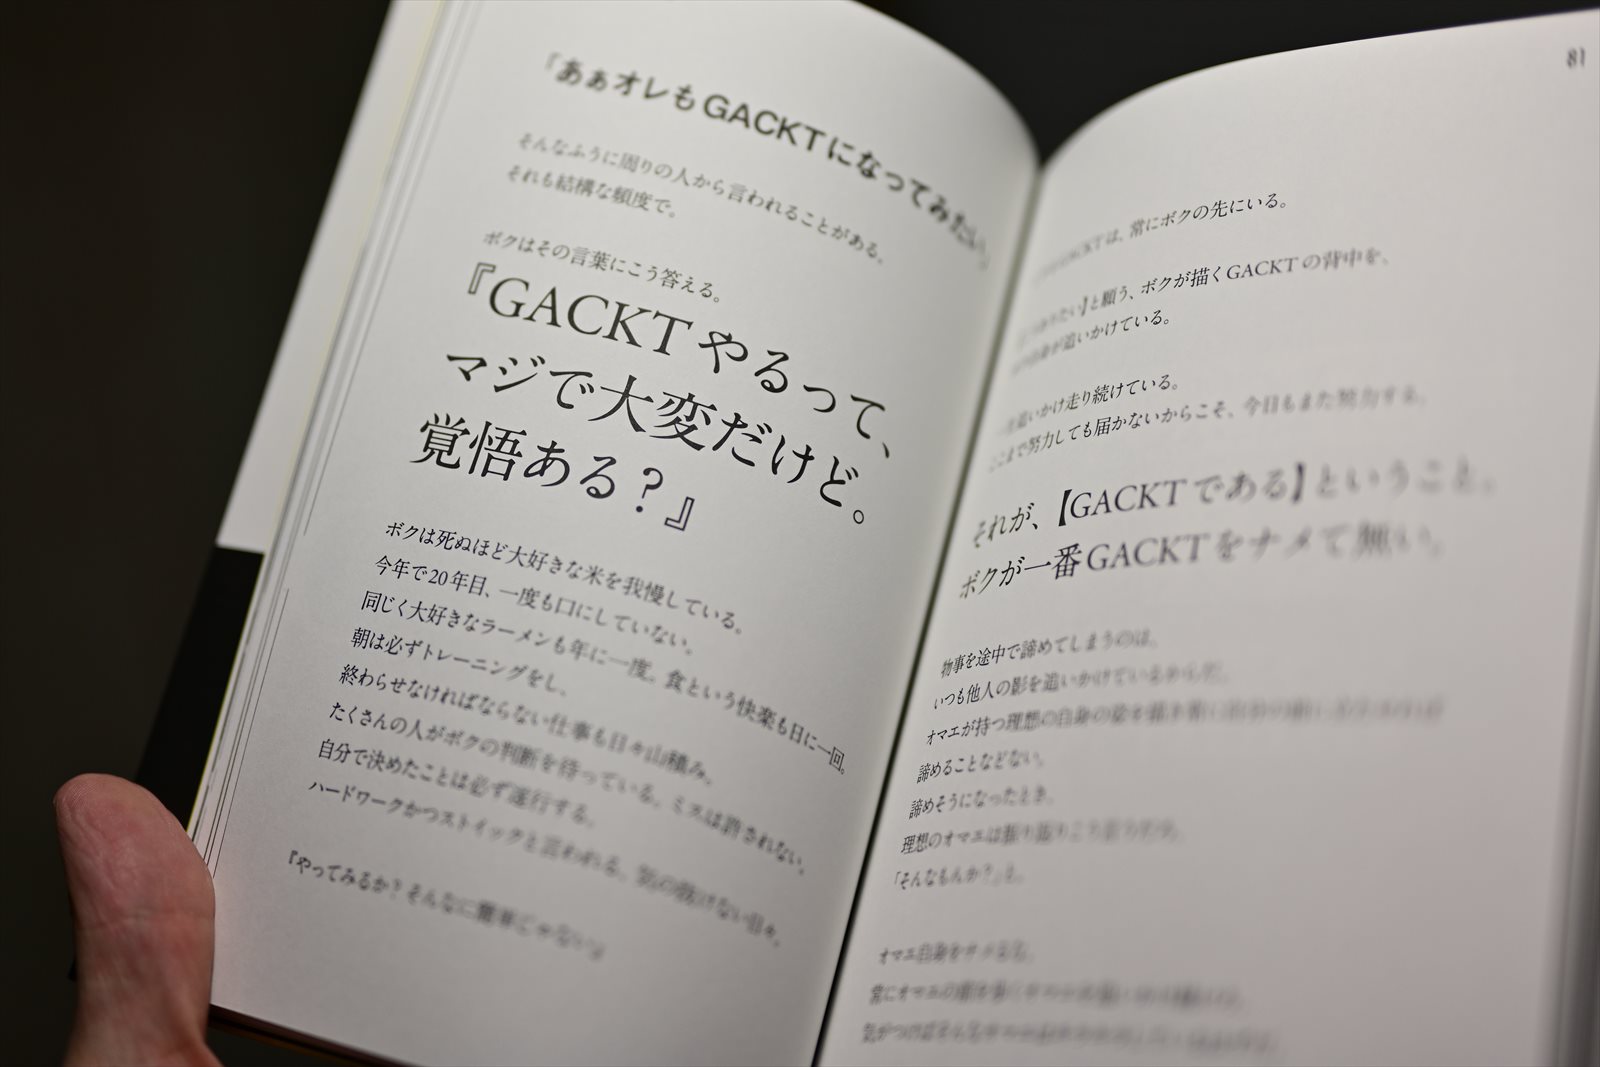 「あぁオレもGACKTになってみたい」
そんなふうに周りの人から言われることがある。
それも結構な頻度で。
ボクはその言葉にこう答える。
『GACKTやるって、
マジで大変だけど。
覚悟ある？』
ボクは死ぬほど大好きな米を我慢している。
今年で20年目、一度も口にしていない。
同じく大好きなラーメンも年に一度。食という快楽も日に一回。
朝は必ずトレーニングをし、
終わらせなければならない仕事も日々山積み。
たくさんの人がボクの判断を待っている。ミスは許されない。
自分で決めたことは必ず遂行する。
ハードワークかつストイックと言われる、気の抜けない日々。
『やってみるか？そんなに簡単じゃない』
81
GACKTは、常にボクの先にいる。
と願う、ボクが描くGACKTの背中を、
が追いかけている。
追いかけ走り続けている。
ここまで努力しても届かないからこそ、今日もまた努力する。
それが、【GACKTである】ということ。
ボクが一番GACKTをナメて無い。
物事を途中で諦めてしまうのは、
いつも他人の影を追いかけているからだ。
オマエが持つ理想の自身の姿を
諦めることなどない。
諦めそうになったとき、
理想のオマエは振り返りこう言うだろ。
「そんなもんか？」と。
オマエ自身をナメるな。
常にオマエの
気がつけば